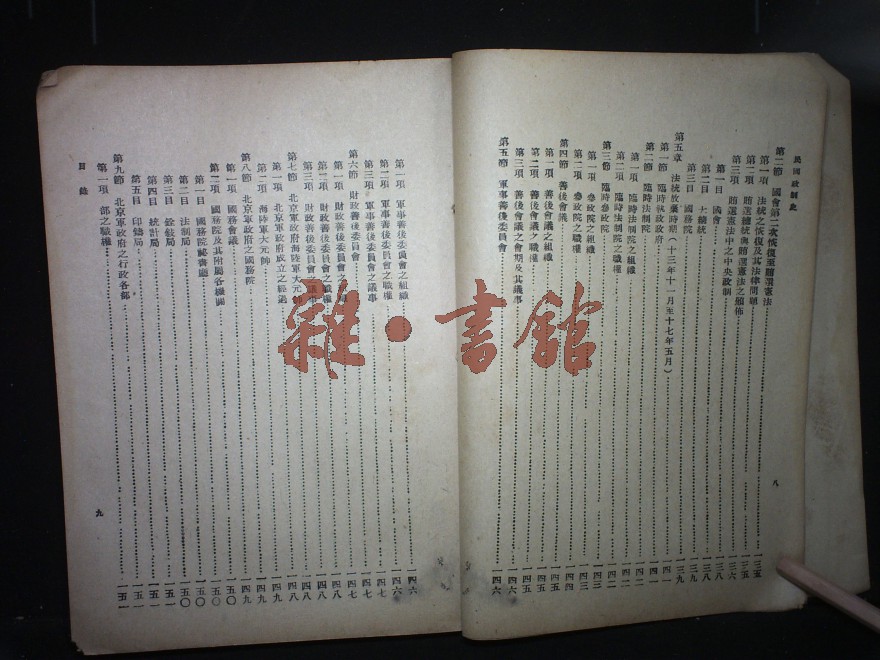 民國政制史
第二節 國會第二次恢復至賄選憲法 一三五
第一項 法統之恢復及其法律問題 一三五
第二項 賄選總統與賄選憲法之頒佈 一三五
第三項 賄選憲法中之中央政制 一三六
第一目 國會 一三七
第二目 大總統 一三八
第三目 國務院 一三九
第五章 法統放棄時期（十三年十一月至十七年五月） 一三九
第一節 臨時執政府 一四一
第二節 臨時法制院 一四一
第一項 臨時法制院之組織 一四二
第二項 臨時法制院之職權 一四二
第三節 臨時參政院 一四二
第一項 參政院之組織 一四三
第二項 參政院之職權 一四三
第四節 善後會議 一四四
第一項 善後會議之組織 一四五
第二項 善後會議之職權 一四五
第三項 善後會議之會期及其議事 一四六
第五節 軍事善後委員會 一四六
八
第一項 軍事善後委員會之組織 一四六
第二項 軍事善後委員會之職權 一四六
第三項 軍事善後委員會之議事 一四七
第六節 財政善後委員會 一四七
第一項 財政善後委員會之組織 一四七
第二項 財政善後委員會之職權 一四八
第三項 財政善後委員會之議事 一四八
第七節 北京軍政府海陸軍大元帥 一四八
第一項 北京軍政府成立之 一四八
第二項 海陸軍大元帥 一四九
第八節 北京軍政府之國務院 一四九
第一項 國務會議 一五〇
第二項 國務院及其附屬各機關 一五〇
第一目 國務院祕書廳 一五〇
第二目 法制局 一五〇
第三目 銓敍局 一五一
第四目 統計局 一五一
第五目 印鑄局 一五一
第九節 北京軍政府之行政各部 一五一
第一項 部之職權 一五一
目錄
九
雜·書館